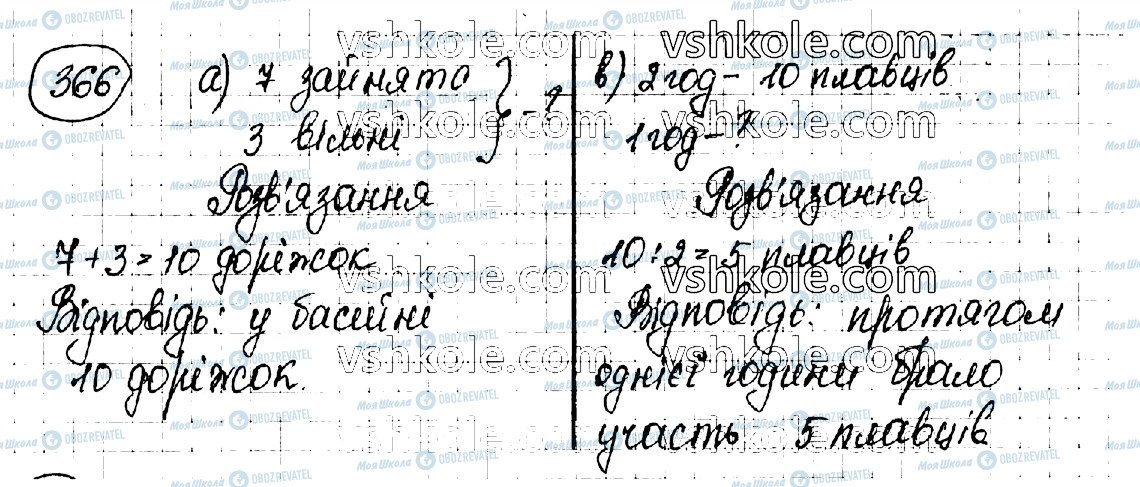 366
а) 7 зайнято } - ?
3 вільні
Розв'язання
7 + 3 = 10 доріжок
Відповідь: у басейні
10 доріжок.
в) 2 год - 10 плавців
1 год - ?
Розв'язання
10 : 2 = 5 плавців
Відповідь: протягом
однієї години брало
участь 5 плавців
vshkole.com
Моя Школа
OBOZREVATEL